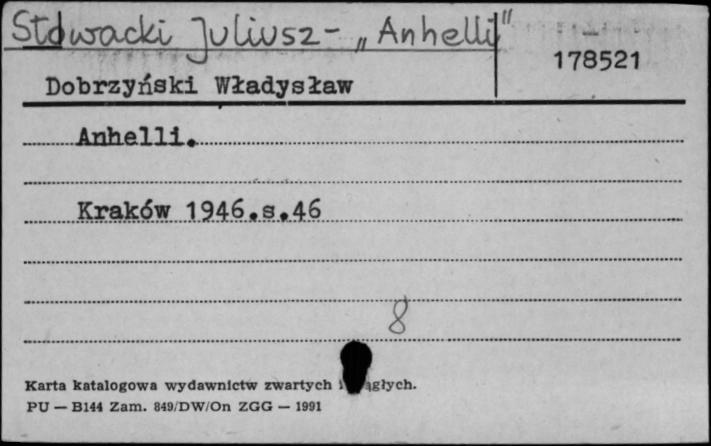 Słowacki Juliusz - „Anhelli"
178521
Dobrzyński Władysław
Anhelli.
Kraków 1946.s.46
8
Karta katalogowa wydawnictw zwartych i
PU — B144 Zam. 849/DW/On ZGG — 1991